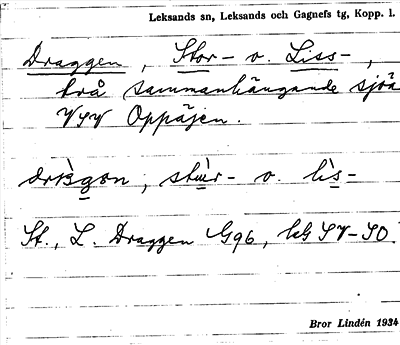 Leksands sn, Leksands och Gagnefs tg, Kopp. l.
Draggen, Stor- o. Liss-,
två sammanhängande sjöa
VSV Oppäjen.
stu̇̀r- o. lı̀s-
St., L. Draggen G96, hG SV-SO.
Bror Lindén 1934